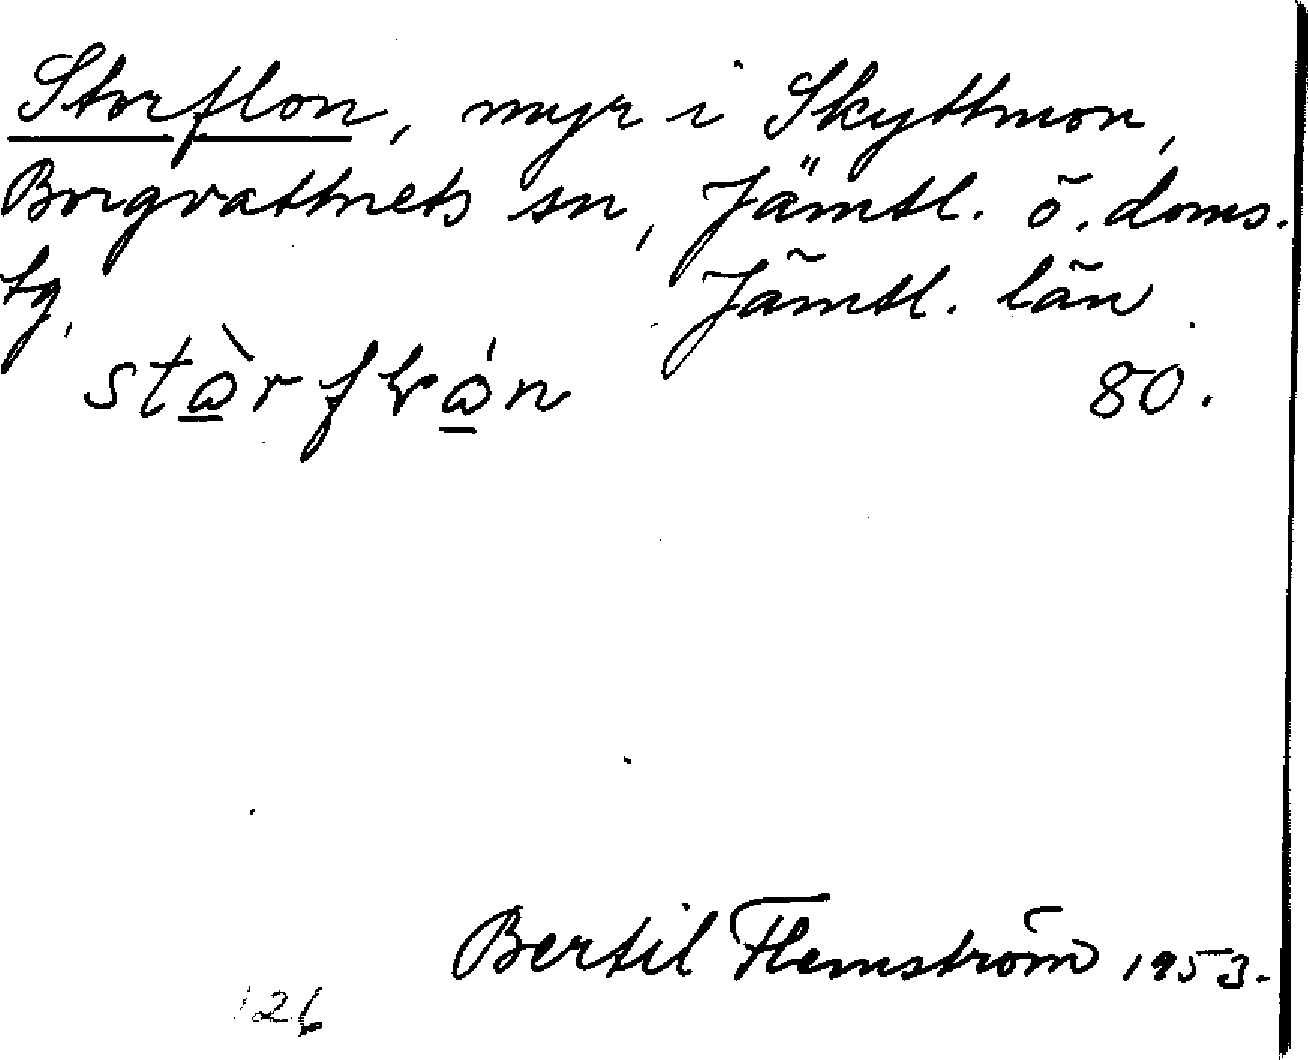 Storflon, myr i Skyttmon,
Borgvattnets sn, Jämtl. ö. doms.
tg,
Jämtl. län.
80.
Bertil Flemström 1953.
126